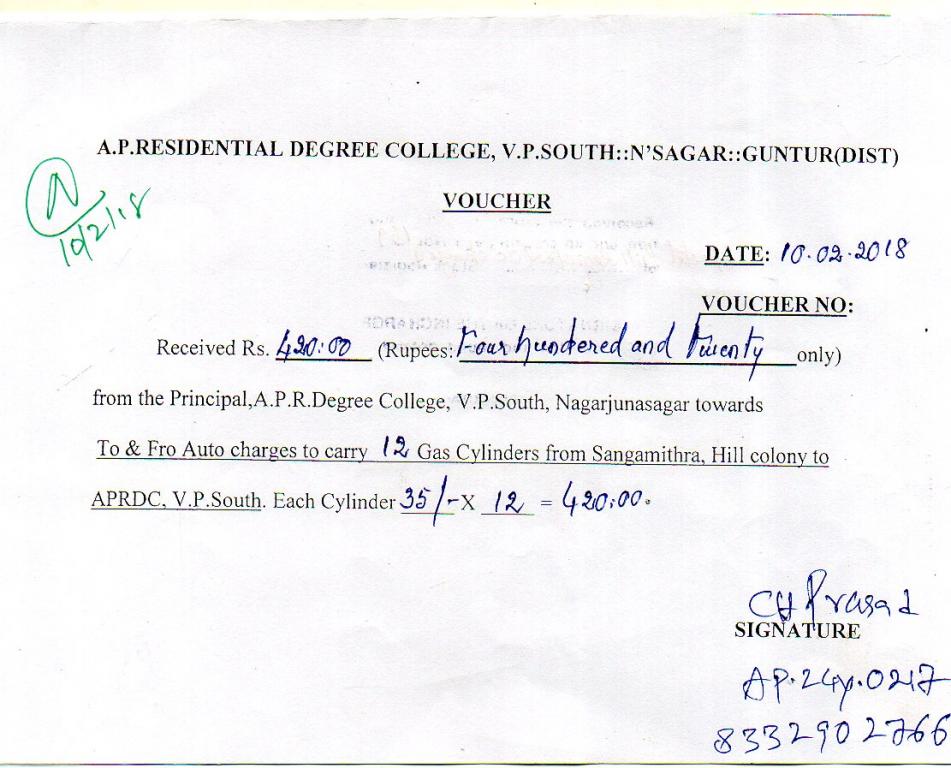 A.P.RESIDENTIAL DEGREE COLLEGE, V.P.SOUTH::N'SAGAR::GUNTUR(DIST)
10/2/18
VOUCHER
DATE: 10.02.2018
VOUCHER NO:
Received Rs. 420:00 (Rupees: Four hundered and Twenty only)
from the Principal,A.P.R.Degree College, V.P.South, Nagarjunasagar towards
To & Fro Auto charges to carry 12 Gas Cylinders from Sangamithra, Hill colony to
APRDC, V.P.South. Each Cylinder 35/- X 12 = 420:00.
CH Prasad
SIGNATURE
AP.24y.0217
8332902766